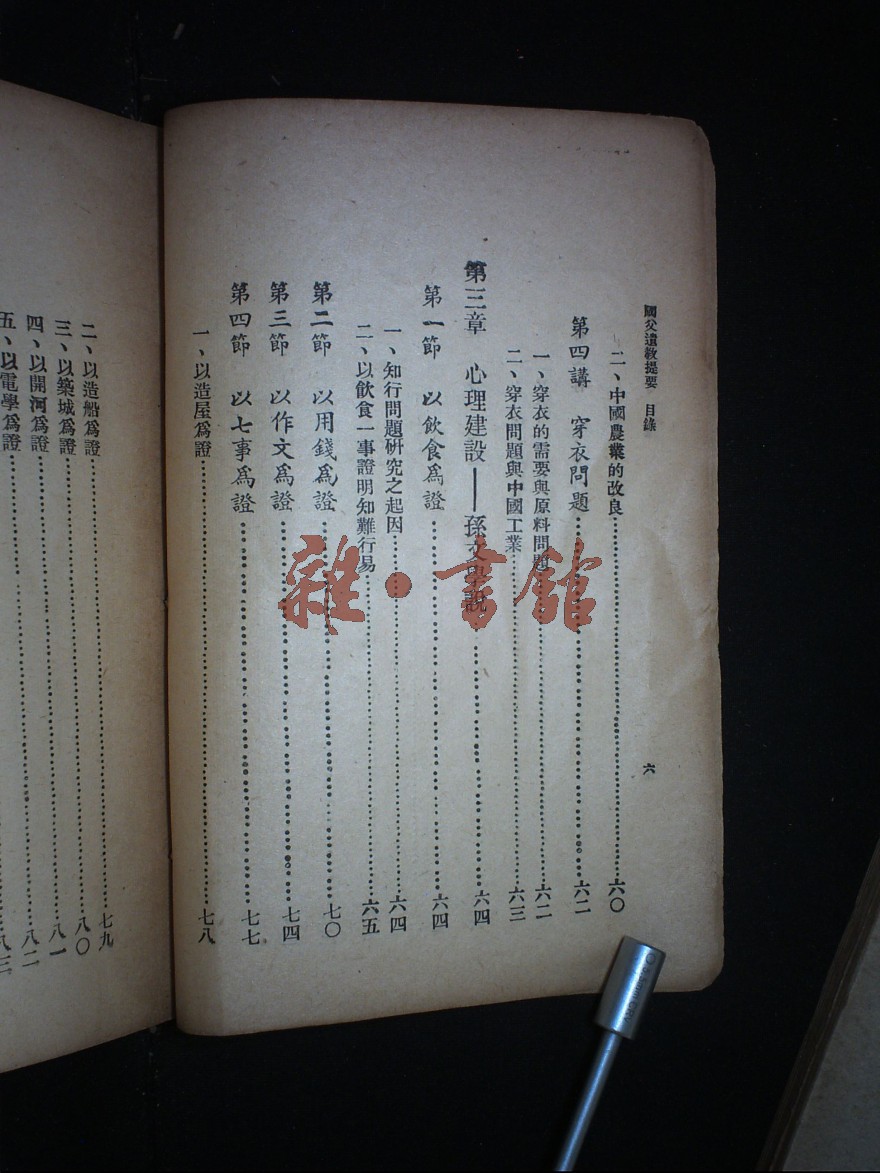 國父遺教提要 目錄 六
二、中國農業的改良……六〇
第四講 穿衣問題……六二
一、穿衣的需要與原料問題……六二
二、穿衣問題與中國工業……六三
第三章 心理建設——孫文學說……六四
第一節 以飲食爲證……六四
一、知行問題研究之起因……六四
二、以飲食一事證明知難行易……六五
第二節 以用錢爲證……七〇
第三節 以作文爲證……七四
第四節 以七事爲證……七七
一、以造屋爲證……七八
二、以造船爲證……七九
三、以築城爲證……八〇
四、以開河爲證……八一
五、以電學爲證……八二
八三
雜·書館